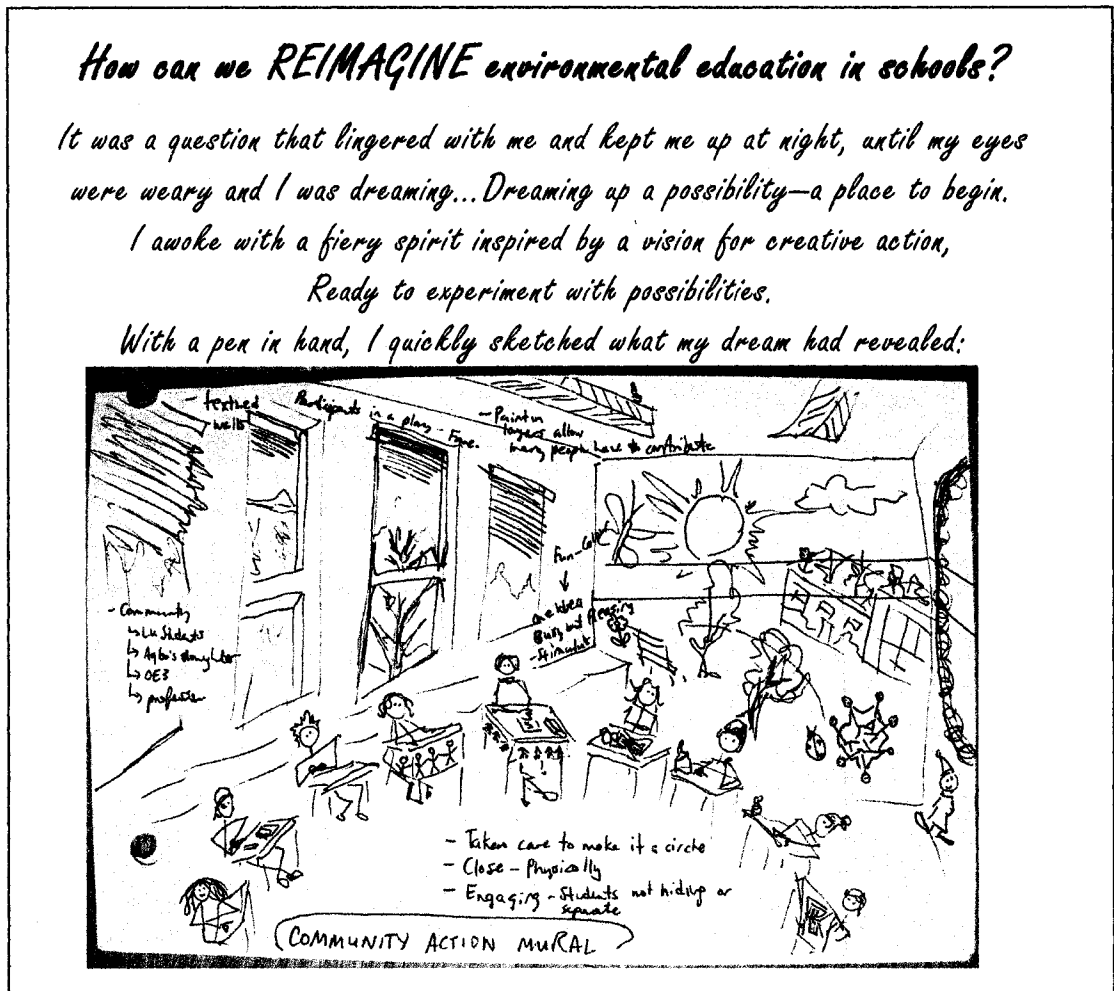 How can we REIMAGINE environmental education in schools?
It was a question that lingered with me and kept me up at night, until my eyes
were weary and I was dreaming... Dreaming up a possibility—a place to begin.
I awoke with a fiery spirit inspired by a vision for creative action,
Ready to experiment with possibilities.
With a pen in hand, I quickly sketched what my dream had revealed:
- textured
walls
Participants in a play -
- Paint in
layers allow
many people have to contribute
- Community
↳ LU Students
↳ daughter
↳ OE3
↳ professor
Fun-
Busy but Pleasing
- Stimulate
- Taken care to make it a circle
- Close - Physically
- Engaging - Students not hiding or
separate
COMMUNITY ACTION MURAL